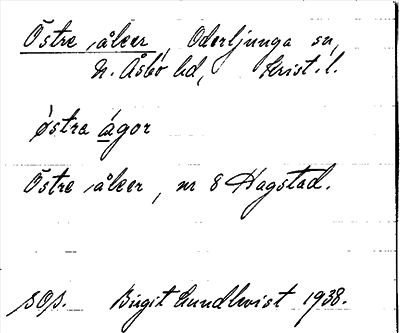 Östre åker, Oderljunga sn,
N. Åsbo hd, Krist. l.
østra ágor
Östre åker, nr 8 Hagstad.
sop. Birgit Lundkvist 1938.